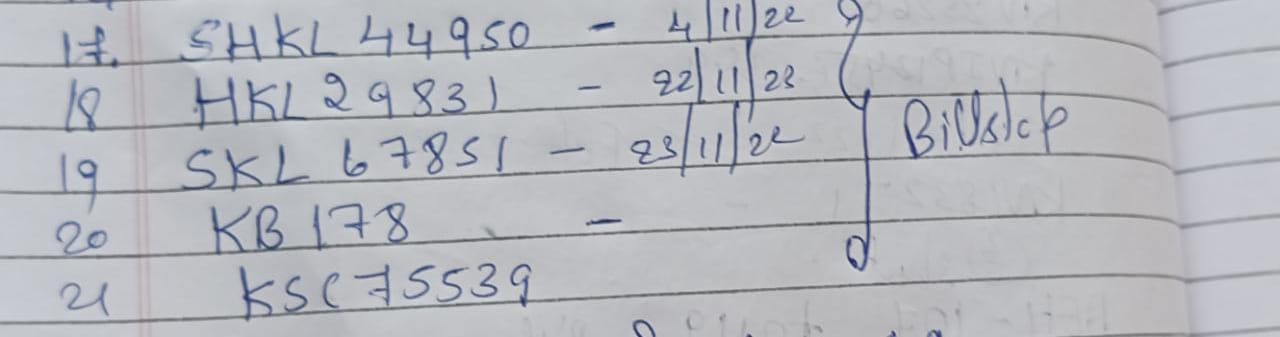 17. SHKL 44950 - 4/11/22
18 HKL 29831 - 22/11/23
19 SKL 67851 - 23/11/22
Billstop
20 KB 178 -
21 KSC 75539